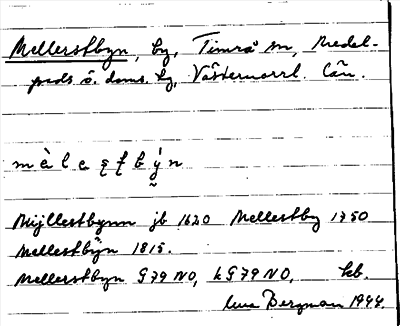 Mellerstbyn, by, Timrå sn, Medel-
pads ö. doms. hg, Västernorrl. län.
Mijllestbynn jb 1620 Mellestby 1750
Mellestbÿn 1815.
Mellerstbyn G79 NO, kG79 NO,
Bergman 1944.